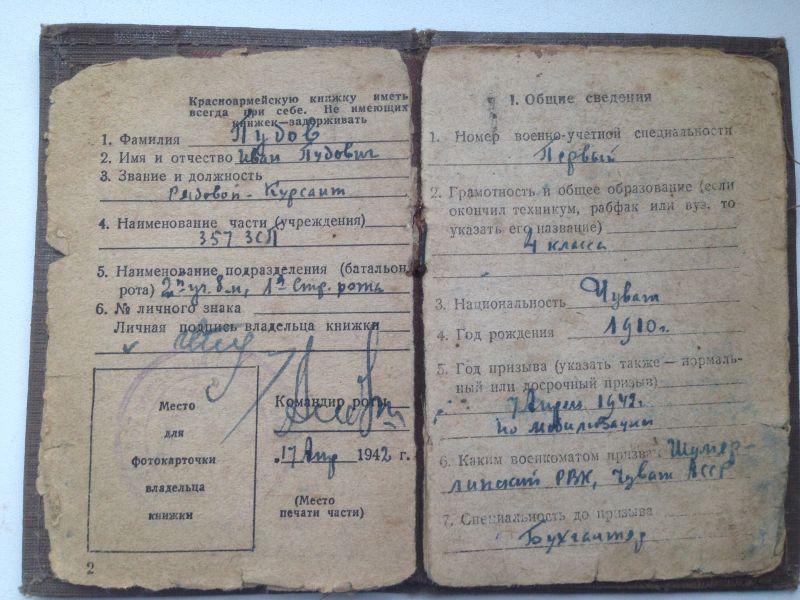 Красноармейскую книжку иметь
всегда при себе. Не имеющих
книжек—задерживать
1. Фамилия Пудов
2. Имя и отчество Иван Пудович
3. Звание и должность
Рядовой - Курсант
4. Наименование части (учреждения)
357 ЗСП
5. Наименование подразделения (батальон,
рота) 2й уч. б-н, 1я Стр. рота
6. № личного знака
Личная подпись владельца книжки
Командир роты
17 Апр 1942 г.
Место
для
фотокарточки
владельца
книжки
(Место
печати части)
2
I. Общие сведения
1. Номер военно-учетной специальности
Первый
2. Грамотность и общее образование (если
окончил техникум, рабфак или вуз, то
указать его название)
4 класса
3. Национальность Чуваш
4. Год рождения 1910 г.
5. Год призыва (указать также — нормаль-
ный или досрочный призыв)
7 Апрель 1942 г.
по мобилизации
6. Каким военкоматом призван Шумер-
линский РВК, Чуваш АССР
7. Специальность до призыва
Бухгалтер